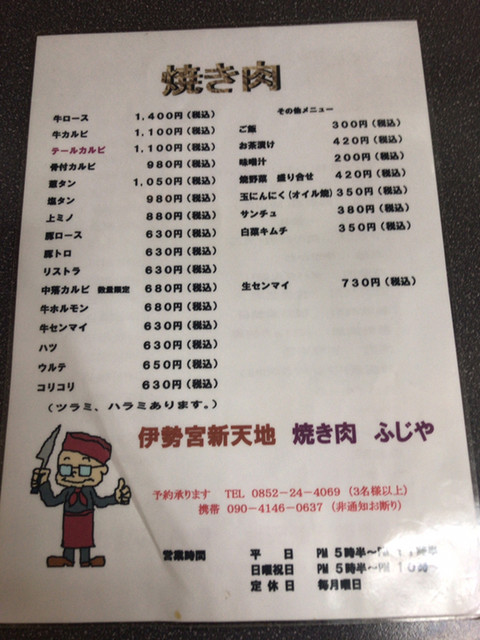 焼き肉
牛ロース 1,400円(税込)
牛カルビ 1,100円(税込)
テールカルビ 1,100円(税込)
骨付カルビ 980円(税込)
葱タン 1,050円(税込)
塩タン 980円(税込)
上ミノ 880円(税込)
豚ロース 630円(税込)
豚トロ 630円(税込)
リストラ 630円(税込)
中落カルビ 数量限定 680円(税込)
牛ホルモン 680円(税込)
牛センマイ 630円(税込)
ハツ 630円(税込)
ウルテ 650円(税込)
コリコリ 630円(税込)
(ツラミ、ハラミあります。)
その他メニュー
ご飯 300円(税込)
お茶漬け 420円(税込)
味噌汁 200円(税込)
焼野菜 盛り合せ 420円(税込)
玉にんにく(オイル焼) 350円(税込)
サンチュ 380円(税込)
白菜キムチ 350円(税込)
生センマイ 730円(税込)
伊勢宮新天地 焼き肉 ふじや
予約承ります TEL 0852-24-4069 (3名様以上)
携帯 090-4146-0637 (非通知お断り)
営業時間 平 日 PM 5時半~
日曜祝日 PM 5時半~PM 10時~
定休日 毎月曜日